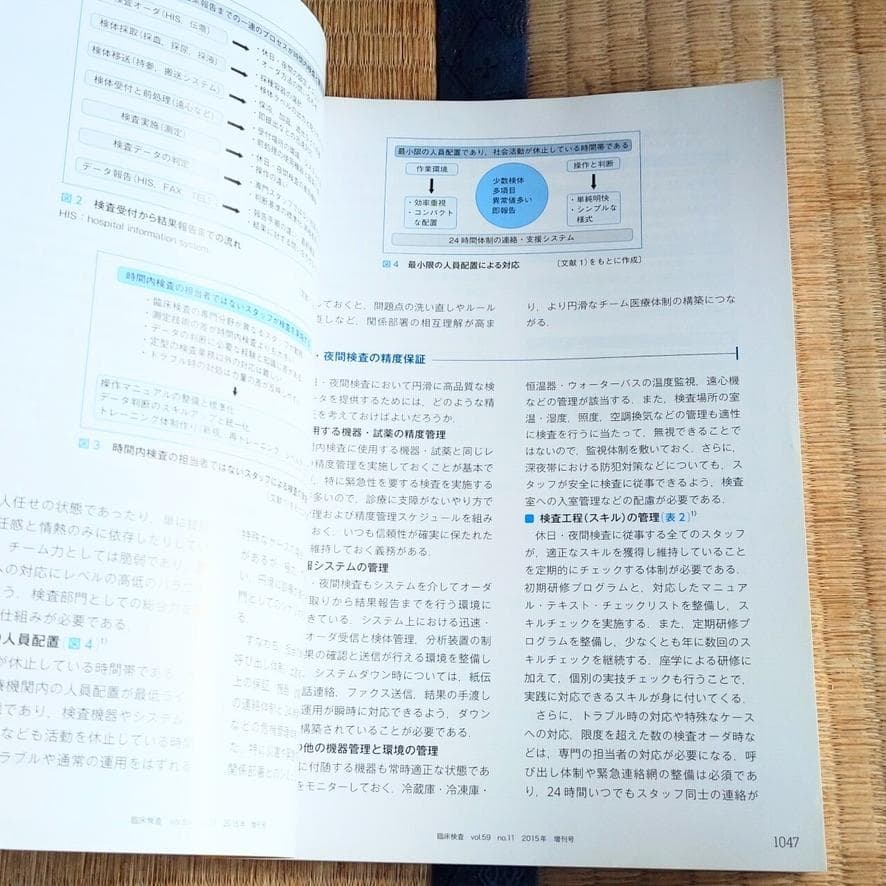 検査オーダ(HIS, 伝票)
検体採取(採血, 採尿, 採液)
検体移送(持参, 搬送システム)
検体受付と前処理(遠心など)
検査実施(測定)
検査データの判定
データ報告(HIS, FAX, TEL)
図2 検査受付から結果報告までの流れ
HIS:hospital information system.
時間内検査の担当者ではないスタッフが検査を
・臨床検査の専門分野が異なるスタッフ
・測定技術の差が時間内検査よりも
・データの判断に必要な経験と知識
・定型の検査業務以外の対応は難しい
・トラブル時の対処は力量の差が
操作マニュアルの整備と標準化
データ判断のスキルアップと統一化
トレーニング体制作り
図3 時間内検査の担当者ではないスタッフによる検査
人任せの状態であったり,単に
任感と情熱のみに依存したりして
,チーム力としては脆弱であり
への対応にレベルの高低の
う.検査部門としての総合力
仕組みが必要である.
人員配置(図4)1)
が休止している時間帯である
療機関内の人員配置が最低
態であり,検査機器やシステム
なども活動を休止している時間
ラブルや通常の運用をはずれる
臨床検査 2015年 増刊号
最小限の人員配置であり,社会活動が休止している時間帯である
作業環境
・効率重視
・コンパクト
な配置
少数検体
多項目
異常値多い
即報告
操作と判断
・単純明快
・シンプルな
様式
24時間体制の連絡・支援システム
図4 最小限の人員配置による対応
〔文献1)をもとに作成〕
しておくと,問題点の洗い直しやルール
直しなど,関係部署の相互理解が高ま
り,より円滑なチーム医療体制の構築につな
がる.
・夜間検査の精度保証
日・夜間検査において円滑に高品質な検
ータを提供するためには,どのような精
証を考えておけばよいだろうか.
用する機器・試薬の精度管理
間内検査に使用する機器・試薬と同じレ
の精度管理を実施しておくことが基本で
,特に緊急性を要する検査を実施する
多いので,診療に支障がないやり方で
理および精度管理スケジュールを組み
おく.いつも信頼性が確実に保たれた
維持しておく義務がある.
報システムの管理
・夜間検査もシステムを介してオーダ
取りから結果報告までを行う環境に
きている.システム上における迅速・
オーダ受信と検体管理,分析装置の制
果の確認と送信が行える環境を整備し
,システムダウン時については,紙伝
話連絡,ファクス送信,結果の手渡し
運用が瞬時に対応できるよう,ダウン
構築されていることが必要である.
の他の機器管理と環境の管理
に付随する機器も常時適正な状態であ
をモニターしておく.冷蔵庫・冷凍庫・
恒温器・ウォーターバスの温度監視,遠心機
などの管理が該当する.また,検査場所の室
温・湿度,照度,空調換気などの管理も適性
に検査を行うに当たって,無視できることで
はないので,監視体制を敷いておく.さらに,
深夜帯における防犯対策などについても,ス
タッフが安全に検査に従事できるよう,検査
室への入室管理などの配慮が必要である.
■ 検査工程(スキル)の管理(表2)1)
休日・夜間検査に従事する全てのスタッフ
が,適正なスキルを獲得し維持していること
を定期的にチェックする体制が必要である.
初期研修プログラムと,対応したマニュア
ル・テキスト・チェックリストを整備し,ス
キルチェックを実施する.また,定期研修プ
ログラムを整備し,少なくとも年に数回のス
キルチェックを継続する.座学による研修に
加えて,個別の実技チェックも行うことで,
実践に対応できるスキルが身に付いてくる.
さらに,トラブル時の対応や特殊なケース
への対応,限度を超えた数の検査オーダ時な
どは,専門の担当者の対応が必要になる.呼
び出し体制や緊急連絡網の整備は必須であ
り,24時間いつでもスタッフ同士の連絡が
臨床検査 vol.59 no.11 2015年 増刊号
1047